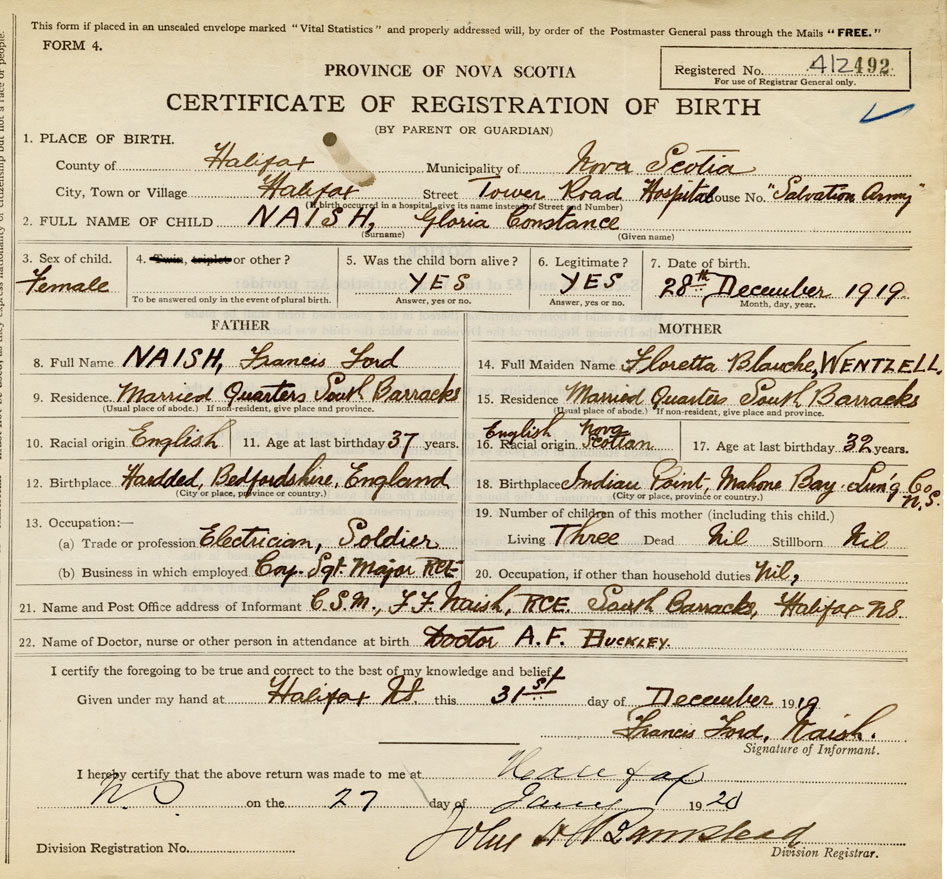 This form if placed in an unsealed envelope marked "Vital Statistics" and properly addressed will, by order of the Postmaster General pass through the Mails "FREE."
FORM 4.
Registered No. 412492
For use of Registrar General only.
PROVINCE OF NOVA SCOTIA
CERTIFICATE OF REGISTRATION OF BIRTH
(BY PARENT OR GUARDIAN)
1. PLACE OF BIRTH.
County of Halifax Municipality of Nova Scotia
City, Town or Village Halifax Street Tower Road Hospital House No. "Salvation Army"
(If birth occurred in a hospital, give its name instead of Street and Number)
2. FULL NAME OF CHILD NAISH, Gloria Constance
(Surname) (Given name)
3. Sex of child. 4. Twin, triplet or other? 5. Was the child born alive? 6. Legitimate? 7. Date of birth.
Female YES YES 28th December 1919.
To be answered only in the event of plural birth. Answer, yes or no. Answer, yes or no. Month, day, year.
FATHER
8. Full Name NAISH, Francis Ford
9. Residence. Married Quarters South Barracks
(Usual place of abode.) If non-resident, give place and province.
10. Racial origin English 11. Age at last birthday 37 years.
12. Birthplace Bedfordshire, England
(City or place, province or country.)
13. Occupation:—
(a) Trade or profession Electrician, Soldier
(b) Business in which employed Coy. Sgt. Major RCE
MOTHER
14. Full Maiden Name Floretta Blanche, WENTZELL,
15. Residence Married Quarters South Barracks
(Usual place of abode.) If non-resident, give place and province.
16. Racial origin English Nova Scotian 17. Age at last birthday 32 years.
18. Birthplace Indian Point, Mahone Bay. Lun'g Co N.S.
(City or place, province or country.)
19. Number of children of this mother (including this child.)
Living Three Dead Nil Stillborn Nil
20. Occupation, if other than household duties Nil,
21. Name and Post Office address of Informant C.S.M., F.F. Naish, RCE. South Barracks, Halifax NS.
22. Name of Doctor, nurse or other person in attendance at birth Doctor A.F. BUCKLEY.
I certify the foregoing to be true and correct to the best of my knowledge and belief.
Given under my hand at Halifax NS. this 31st day of December 1919
Francis Ford, Naish.
Signature of Informant.
I hereby certify that the above return was made to me at Halifax
NS on the 27 day of Jany 1920
John
Division Registration No. Division Registrar.